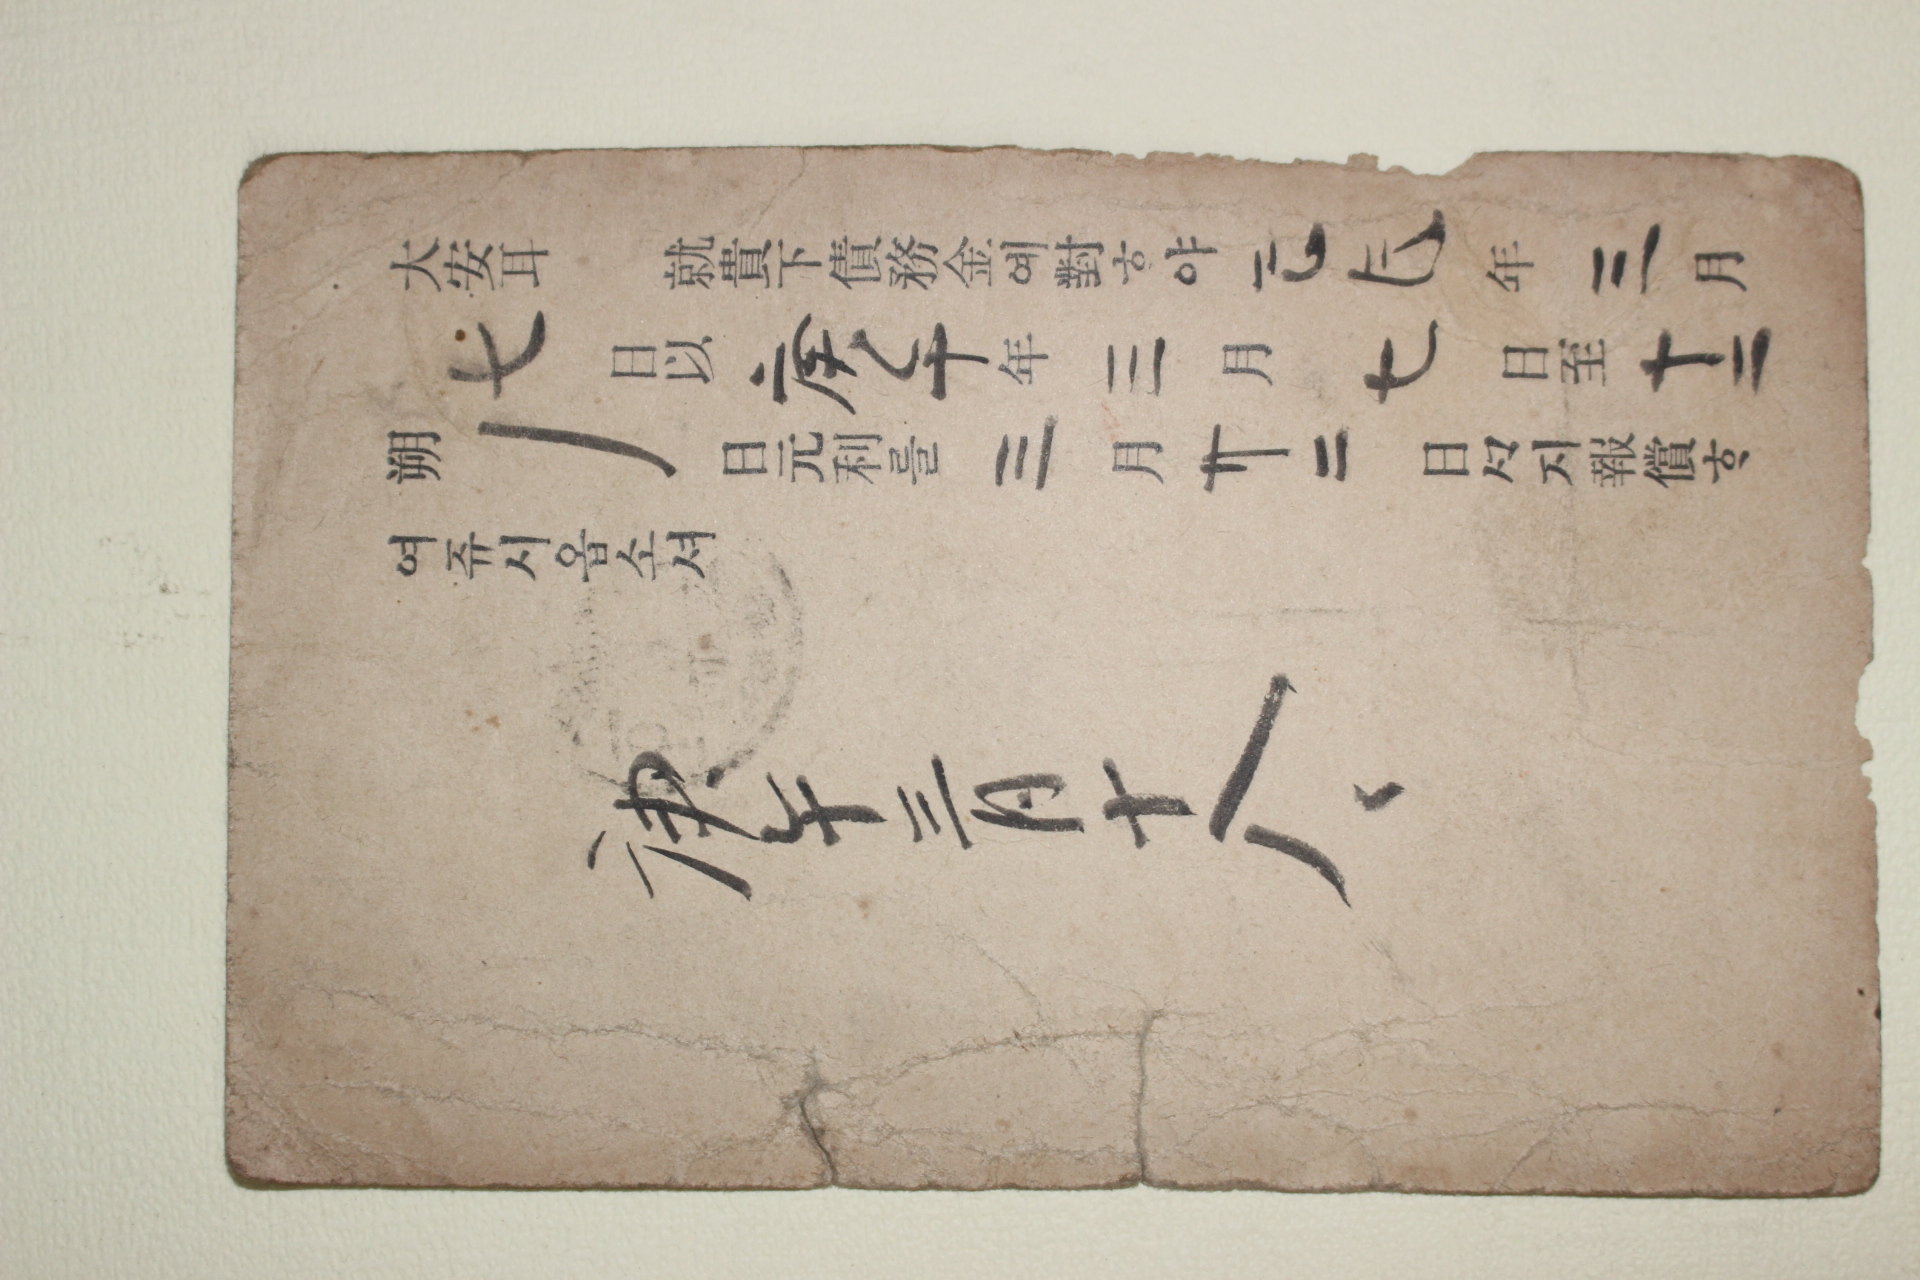 大安耳 就貴下債務金에對ᄒᆞ야 己巳年 三月
七日以 庚午年 三月 七日至十二
朔 日元利를 三月廿二日ᄭᆞ지報償ᄒᆞ
여쥬시옵소셔
庚午三月十八